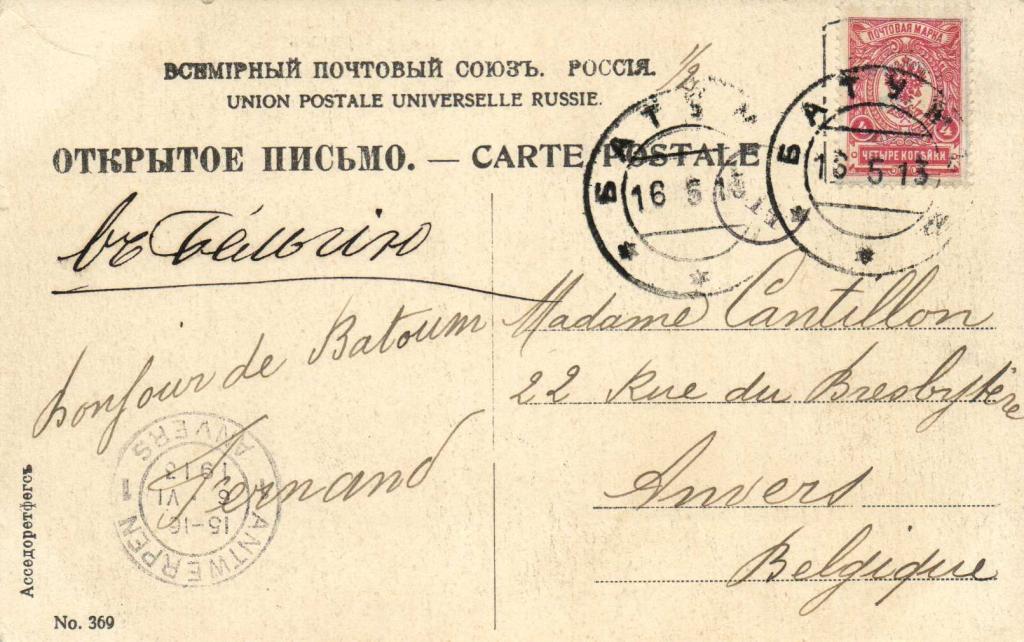 ВСЕМІРНЫЙ ПОЧТОВЫЙ СОЮЗЪ. РОССІЯ.
UNION POSTALE UNIVERSELLE RUSSIE.
ОТКРЫТОЕ ПИСЬМО. — CARTE POSTALE
ПОЧТОВАЯ МАРКА
4 4
ЧЕТЫРЕ КОПѢЙКИ
БАТУМ
16 5 13
БАТУМ
16 5 13
1/2
въ Бельгію
Bonjour de Batoum
Fernand
Madame Cantillon
22 Rue du Presbytère
Anvers
Belgique
1 ANTWERPEN 1
ANVERS
15-16
6 VI
1913
Асседоретфегсъ
No. 369